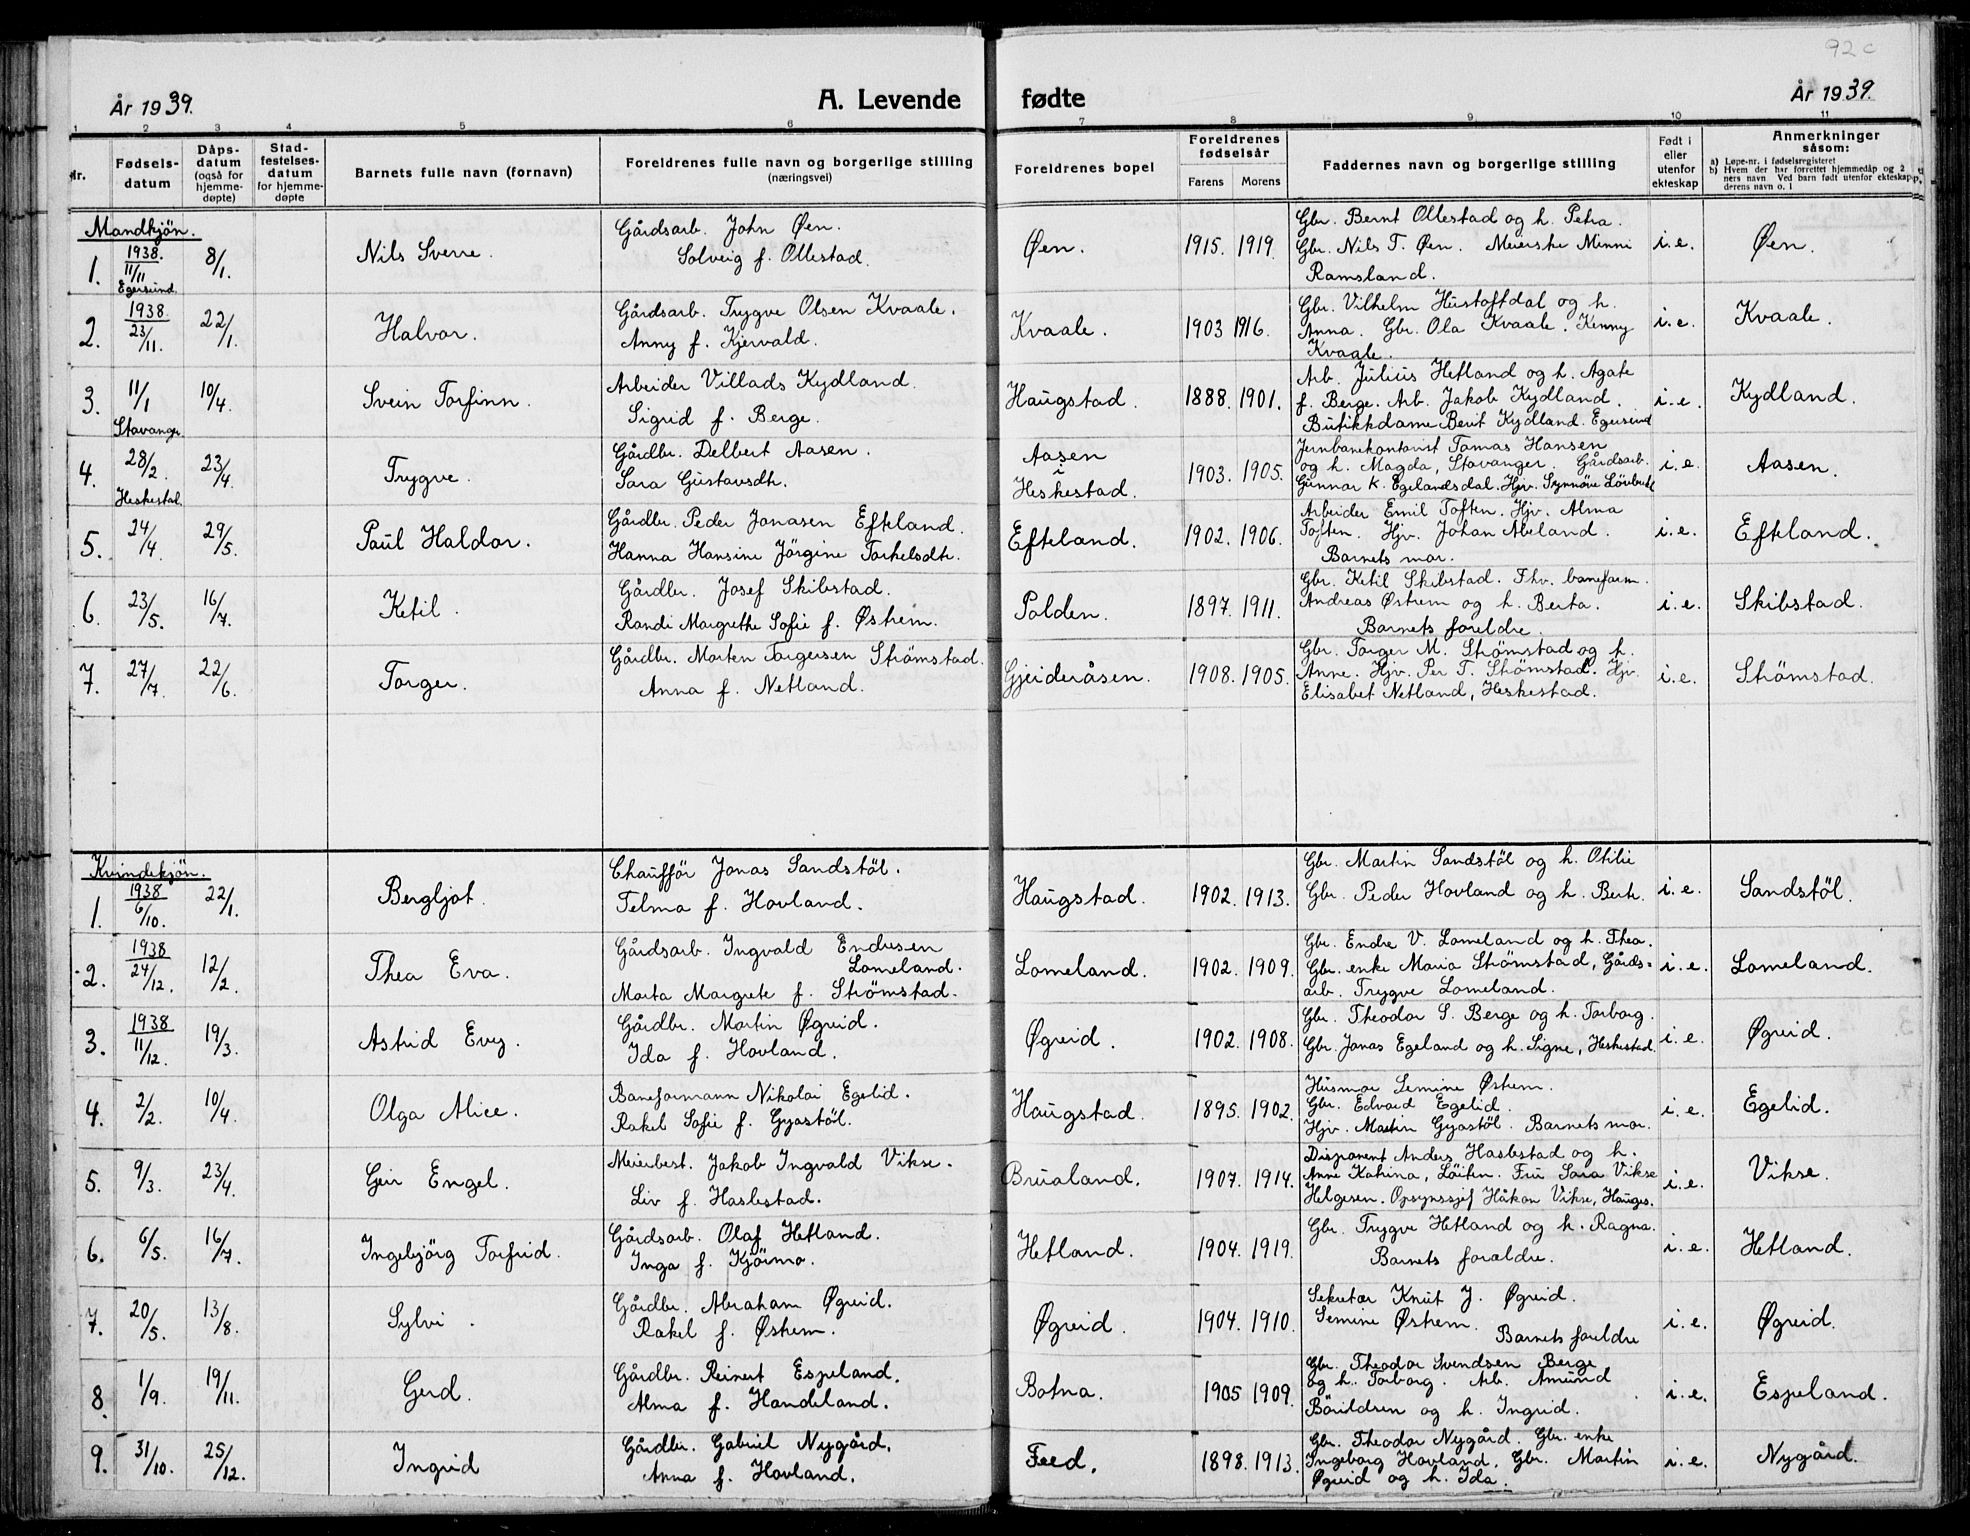 92 c
År 1939.
A. Levende fødte
År 1939.
1 2 3 4 5 6 7 8 9 10 11
Nr.
Fødsels-
datum
Dåps-
datum
(også for
hjemme-
døpte)
Stad-
festelses-
datum
for hjemme-
døpte
Barnets fulle navn (fornavn)
Foreldrenes fulle navn og borgerlige stilling
(næringsvei)
Foreldrenes bopel
Foreldrenes
fødselsår
Farens Morens
Faddernes navn og borgerlige stilling
Født i
eller
utenfor
ekteskap
Anmerkninger
såsom:
a) Løpe-nr. i fødselsregisteret
b) Hvem der har forrettet hjemmedåp og 2
ners navn Ved barn født utenfor ekteskap
derens navn o. l
Mandkjøn.
1.
1938.
11/11
Egersund.
8/1.
Nils Sverre.
Gårdsarb. John Øen.
Solveig f. Ollestad.
Øen.
1915. 1919.
Gbr. Bernt Ollestad og h. Petra.
Gbr. Nils T. Øen. Meierske Minni
Ramsland.
i.e.
Øen.
2.
1938.
23/11.
22/1.
Halvor.
Gårdsarb. Trygve Olsen Kvaale.
Anny f. Kjervald.
Kvaale.
1903 1916.
Gbr. Vilhelm Hustoftdal og h.
Anna. Gbr. Ola Kvaale. Kenny
Kvaale.
i.e.
Kvaale.
3.
11/1
Stavanger
10/4.
Svein Torfinn.
Arbeider Villads Kydland.
Sigrid f. Berge.
Haugstad.
1888. 1901.
Arb. Julius Hetland og h. Agate
f. Berge. Arb. Jakob Kydland.
Butikkdame Berit Kydland. Egersund
i.e.
Kydland.
4.
28/2.
Heskestad.
23/4.
Trygve.
Gårdbr. Delbert Aasen.
Sara Gustavsdtr.
Aasen
i
Heskestad.
1903. 1905.
Jernbanekontorist Tomas Hansen
og h. Magda, Stavanger. Gårdsarb.
Gunnar K. Egelandsdal. Hjv. Synnöve
i.e.
Aasen.
5.
24/4.
29/5.
Paul Haldor.
Gårdbr. Peder Jonasen Efteland.
Hanna Hansine Jörgine Torkelsdtr.
Efteland.
1902. 1906.
Arbeider Emil Toften. Hjv. Alma
Toften. Hjv. Johan Abeland.
Barnets mor.
i.e.
Efteland.
6.
23/5.
16/7.
Ketil.
Gårdbr. Josef Skibstad.
Randi Margrethe Sofie f. Østrem.
Polden.
1897. 1911.
Gbr. Ketil Skibstad. Fhv. baneform.
Andreas Østrem og h. Berta.
Barnets foreldre.
i.e.
Skibstad.
7.
27/7.
22/6.
Torger.
Gårdbr. Morten Torgersen Strömstad.
Anna f. Netland.
Gjeideråsen.
1908. 1905.
Gbr. Torger M. Strömstad og h.
Anne. Hjv. Per T. Strömstad. Hjv.
Elisabet Netland, Heskestad.
i.e.
Strömstad.
Kvindekjön.
1.
1938
6/10.
22/1.
Bergljot.
Chaufför Jonas Sandstöl.
Telma f. Hovland.
Haugstad.
1902. 1913.
Gbr. Martin Sandstöl og h. Otilie
Gbr. Peder Hovland og h. Berte.
i.e.
Sandstöl.
2.
1938
24/12.
12/2.
Thea Eva.
Gårdsarb. Ingvald Endresen
Lomeland.
Marta Margrete f. Strömstad.
Lomeland.
1902. 1909.
Gbr. Endre V. Lomeland og h. Thea.
Gbr. enke Maria Strömstad, Gårds-
arb. Trygve Lomeland.
i.e.
Lomeland.
3.
1938
11/12.
19/3.
Astrid Evy.
Gårdbr. Martin Øgreid.
Ida f. Hovland.
Øgreid.
1902. 1908.
Gbr. Theodor S. Berge og h. Torborg.
Gbr. Jonas Egeland og h. Signe, Heskestad.
i.e.
Øgreid.
4.
2/2.
10/4.
Olga Alice.
Baneformann Nikolai Egelid.
Rakel Sofie f. Gyastöl.
Haugstad.
1895. 1902.
Husmor Semine Østrem.
Gbr. Edvard Egelid.
Hjv. Martin Gyastöl. Barnets mor.
i.e.
Egelid.
5.
9/3.
23/4.
Geir Engel.
Meieribest. Jakob Ingvald Vikse.
Liv f. Haslestad.
Brualand.
1907. 1914.
Disponent Anders Haslestad og h.
Anne Katrina, Löiten. Fru Sara Vikse
Helgesen. Opsynssjef Håkon Vikse, Hauges.
i.e.
Vikse.
6.
6/5.
16/7.
Ingebjörg Torfrid.
Gårdsarb. Olaf Hetland.
Inga f. Kjörmo.
Hetland.
1904. 1919.
Gbr. Trygve Hetland og h. Ragna.
Barnets foreldre.
i.e.
Hetland.
7.
20/5.
13/8.
Sylvi.
Gårdbr. Abraham Øgreid.
Rakel f. Østrem.
Øgreid.
1904. 1910.
Sekretær Knut J. Øgreid.
Semine Østrem. Barnets foreldre
i.e.
Øgreid.
8.
1/9.
19/11.
Gerd.
Gårdbr. Reinert Espeland.
Alma f. Handeland.
Botna.
1905 1909.
Gbr. Theodor Svendsen Berge
og h. Torborg. Arb. Amund
Böuldsen og h. Ingrid.
i.e.
Espeland.
9.
31/10.
25/12.
Ingrid
Gårdbr. Gabriel Nygård.
Anna f. Hovland.
Feed.
1898. 1913.
Gbr. Theodor Nygård. Gbr. enke
Ingeborg Hovland. Gbr. Martin
Øgreid og h. Ida.
i.e.
Nygård.